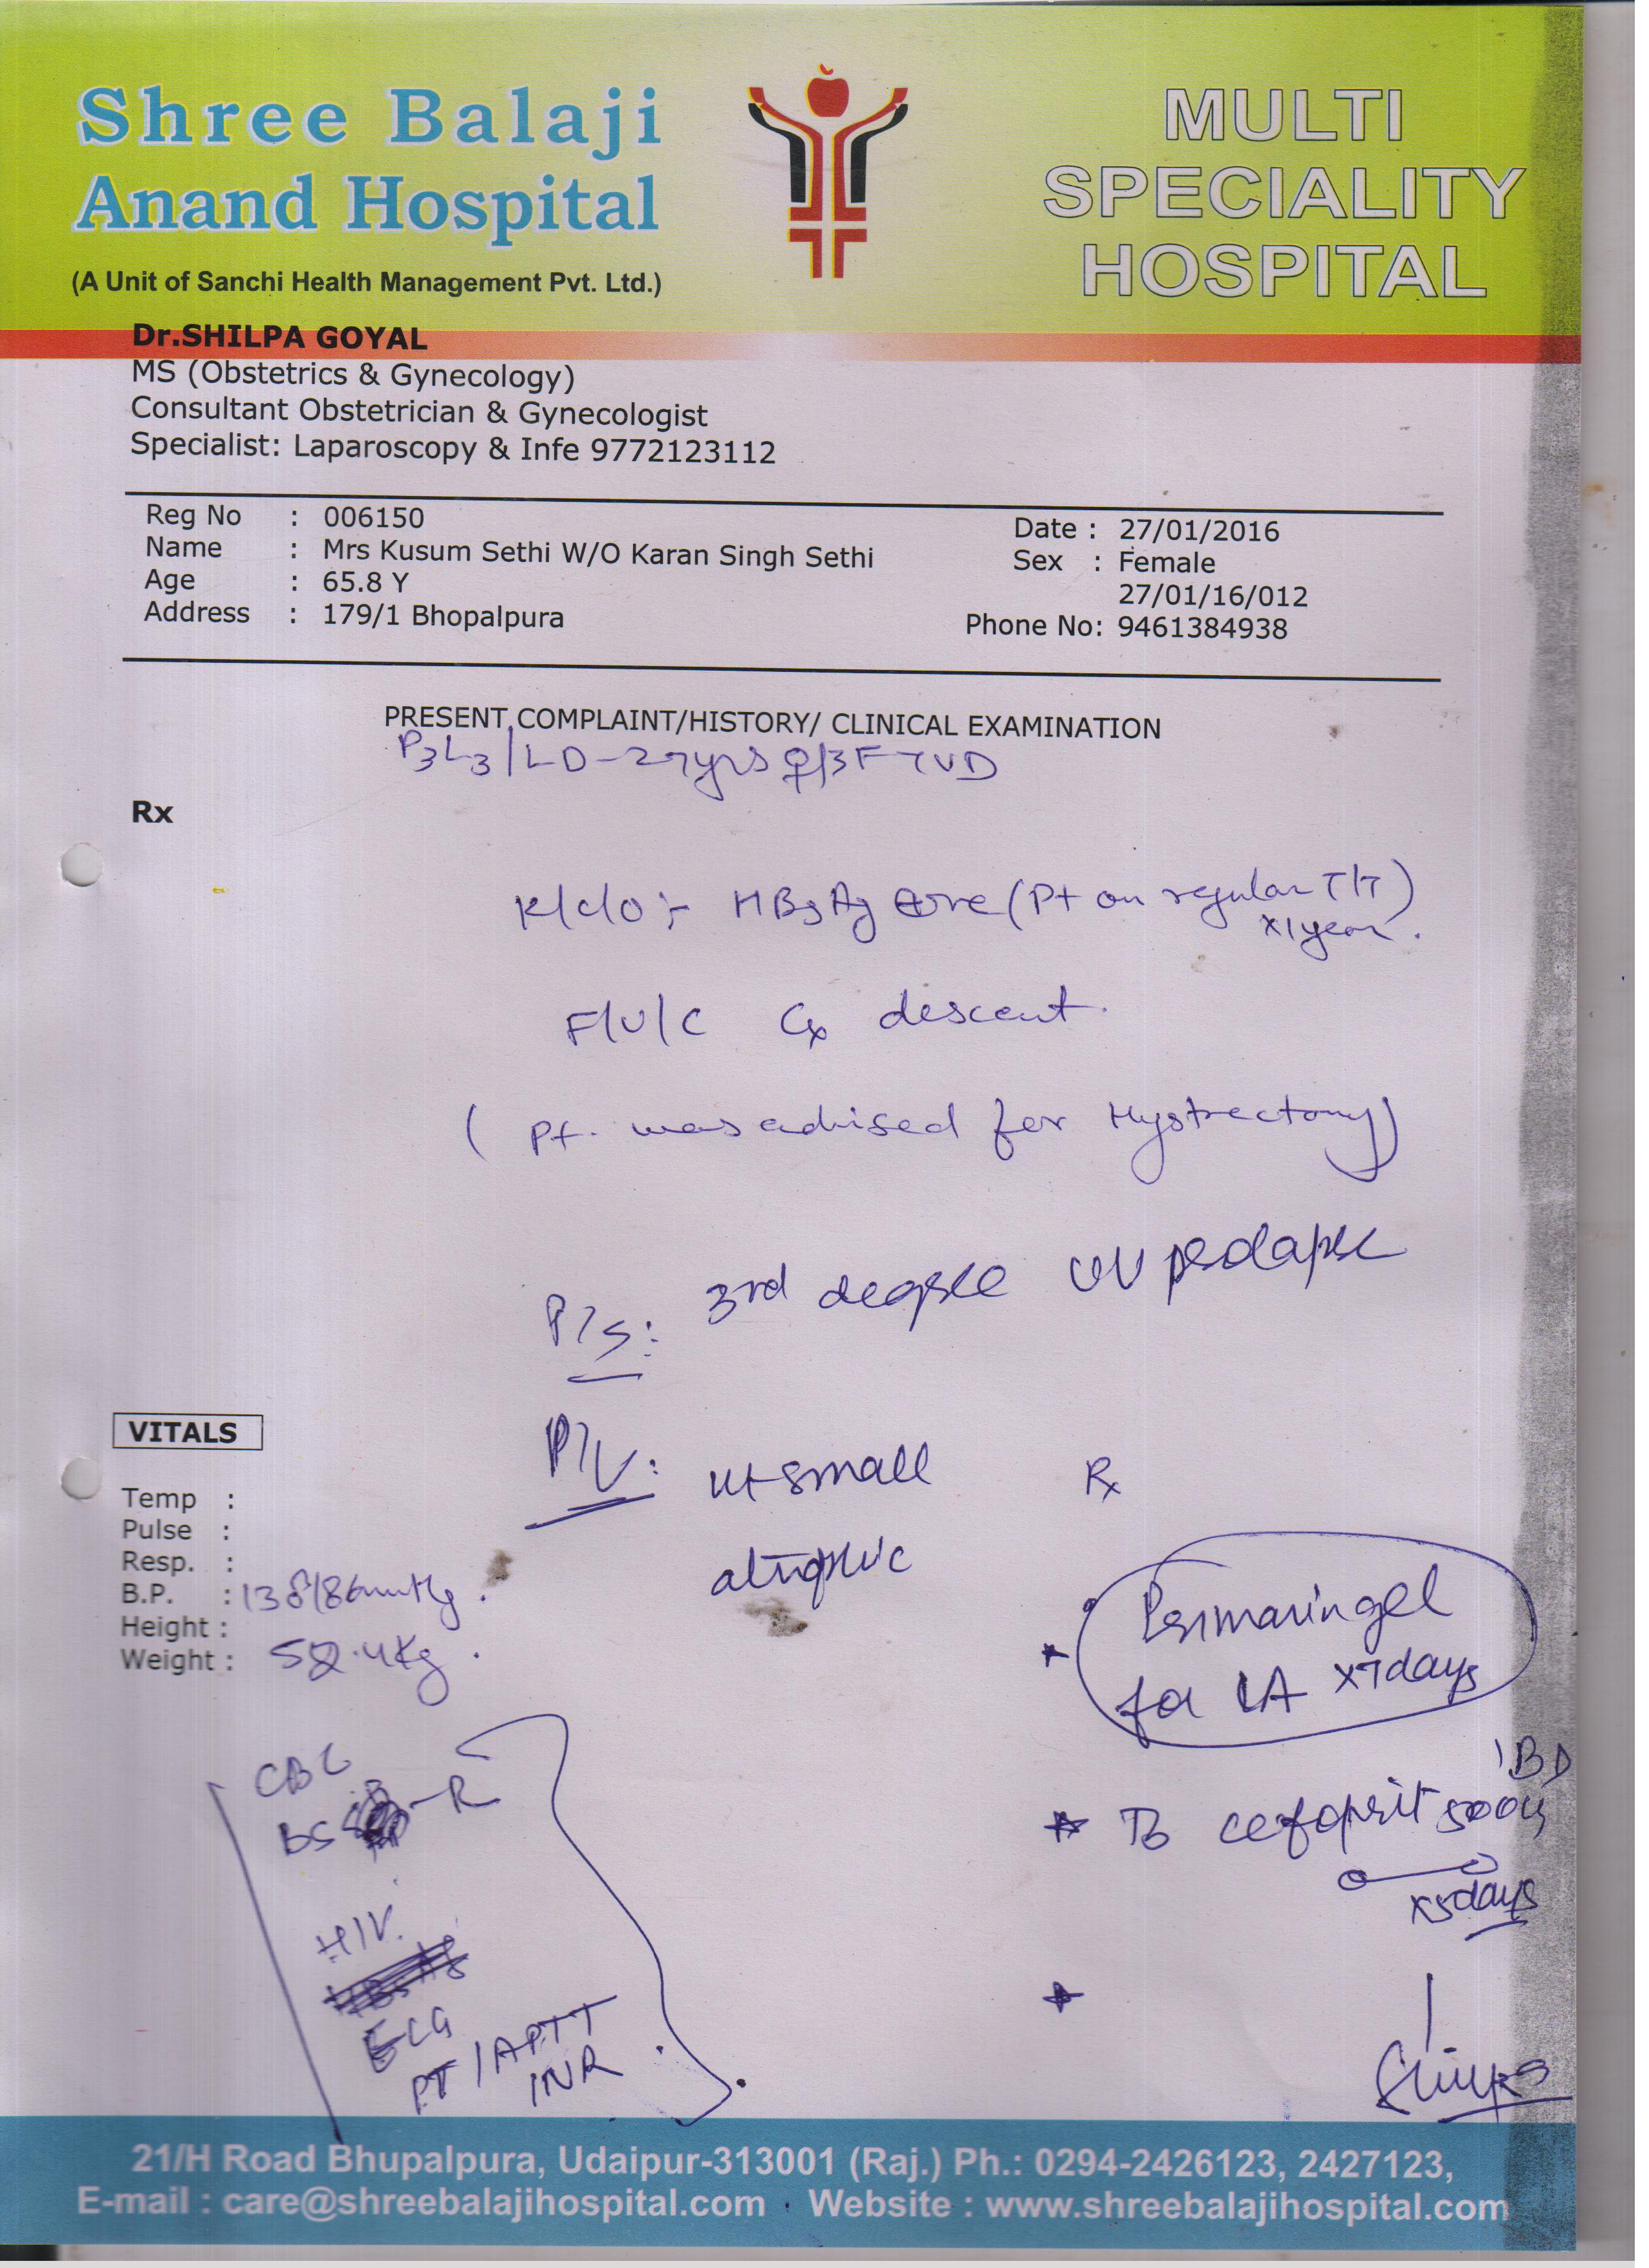 Shree Balaji
Anand Hospital
(A Unit of Sanchi Health Management Pvt. Ltd.)
MULTI
SPECIALITY
HOSPITAL
Dr.SHILPA GOYAL
MS (Obstetrics & Gynecology)
Consultant Obstetrician & Gynecologist
Specialist: Laparoscopy & Infe 9772123112
Reg No : 006150
Name : Mrs Kusum Sethi W/O Karan Singh Sethi
Age : 65.8 Y
Address : 179/1 Bhopalpura
Date : 27/01/2016
Sex : Female
27/01/16/012
Phone No: 9461384938
PRESENT COMPLAINT/HISTORY/ CLINICAL EXAMINATION
P3L3/LD-27yrs ♀/3FTVD
Rx
K/c/o :- HBsAg ⊕ve (Pt on regular T/T)
x1year.
F/U/C Cx descent.
(Pt. was advised for Hystrectomy)
P/S: 3rd degree UV prolapse
P/V: ut small
atrophic
Rx
VITALS
Temp :
Pulse :
Resp. :
B.P. : 138/86mmHg.
Height :
Weight :
gel
for LA x7days
CBC
BS -R
1BD
* Tb 500
x5days
HIV.
ECG
PT/APTT
INR
21/H Road Bhupalpura, Udaipur-313001 (Raj.) Ph.: 0294-2426123, 2427123,
E-mail : care@shreebalajihospital.com Website : www.shreebalajihospital.com